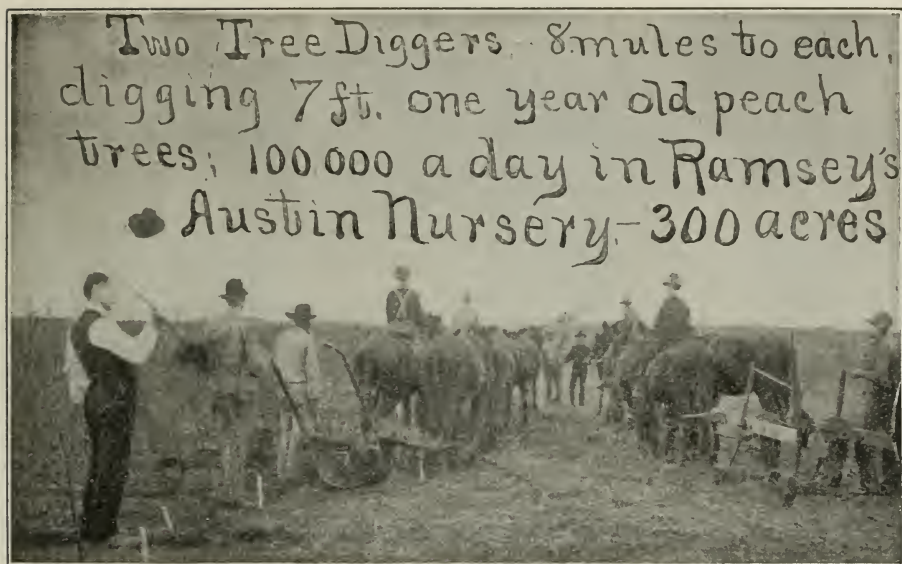 Two Tree Diggers. 8 mules to each,
digging 7 ft. one year old peach
trees; 100 000 a day in Ramsey's
Austin Nursery.-300 acres